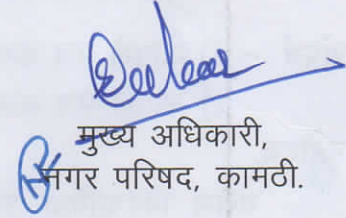 मुख्य अधिकारी,
नगर परिषद, कामठी.